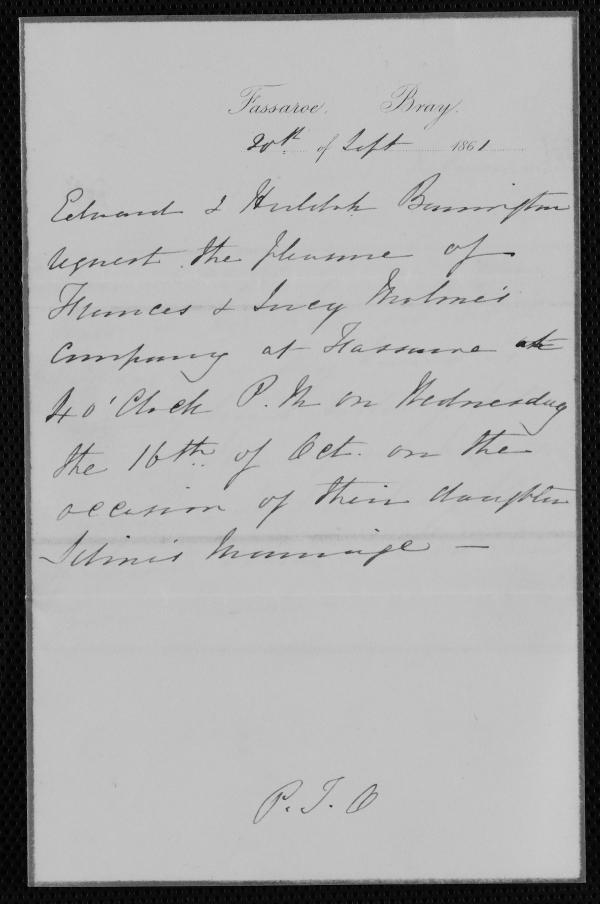 Fassaroe. Bray.
20th of Sept 1861
Edward & Huldah Barrington
request the pleasure of
Frances & Lucy Malone's
company at Fassaroe at
4 o'Clock P. M on Wednesday
the 16th of Oct. on the
occasion of their daughter
Selina's Marriage —
P. T. O